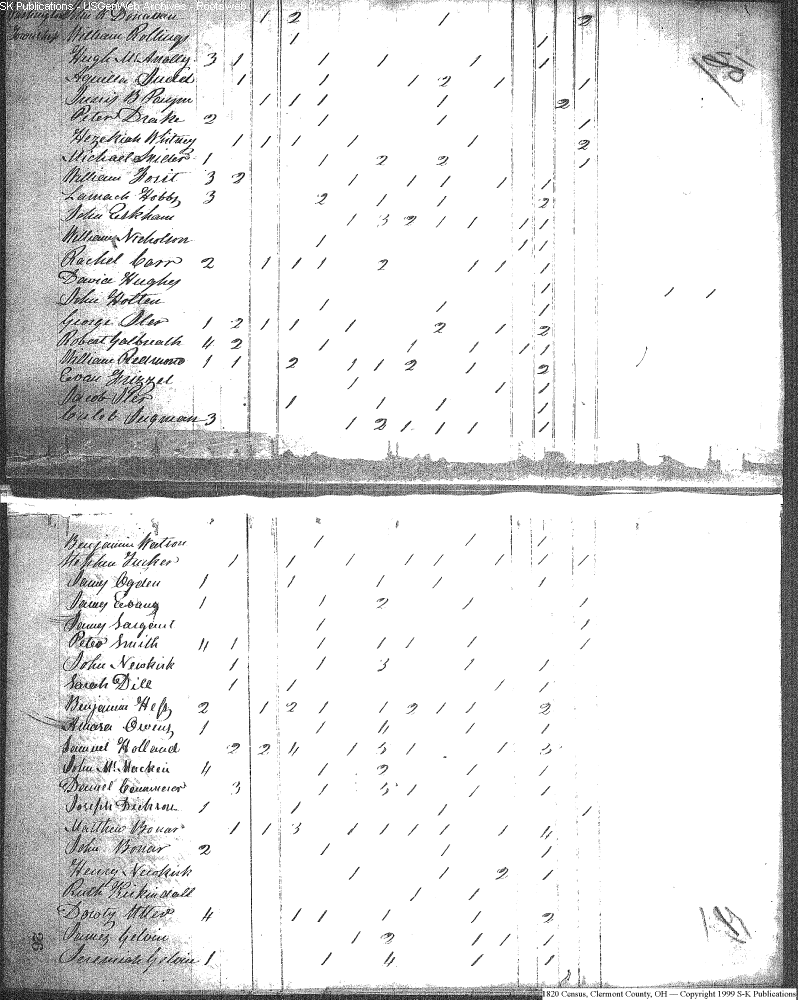 SK Publications - USGenWeb Archives - Rootsweb
Washington John R Donaldson 1 2 1 2
Township William Rollings 1 1
Hugh McAnally 3 1 1 1 1 1
Aquilla Judd 1 1 1 2 1 1
B 1 1 1 1 2
Peter Drake 2 1 1 1
Hezekiah Whitney 1 1 1 1 1 2
Michael 1 1 2 2 1
William 3 2 1 1 1 1 1
Lamach Hobbs 3 2 1 1 2
John 1 3 2 1 1 1 1
William Nicholson 1 1 1
Rachel Carr 2 1 1 1 2 1 1 1
David Hughes 1
John Holten 1 1 1 1 1
George Iler 1 2 1 1 1 2 1 2
Robert Galbreath 4 2 1 1 1 1 1
William Redmond 1 1 2 1 1 2 1 2
Evan Frizzel 1 1 1
Jacob Iler 1 1 1 1
Caleb 3 1 2 1 1 1 1
Benjamin Watson 1 1 1
Stephen Tucker 1 1 1 1 1 1 1 1 1
James Ogden 1 1 1 1 1
James Evans 1 1 2 1 1
James Sargent 1 1
Peter Smith 4 1 1 1 1 1 1
John Newkirk 1 1 3 1 1
Sarah Dill 1 1 1 1
Benjamin Hess 2 1 2 1 1 2 1 1 2
Amasa Owens 1 1 4 1 1
Samuel Holland 2 2 4 1 3 1 1 3
John McMachen 4 1 2 1 1
Daniel 3 1 3 1 1 1
Joseph Dickson 1 1 1 1
Matthew Bonar 1 1 3 1 1 1 1 1 4
John Bonar 2 1 1 1
Henry Newkirk 1 1 2 1
Ruth Kirkindall 1 1
Dowty Utter 4 1 1 1 1 2
James Gelvin 1 2 1 1 1
Jeremiah Gelvin 1 1 4 1 1
1820 Census, Clermont County, OH — Copyright 1999 S-K Publications